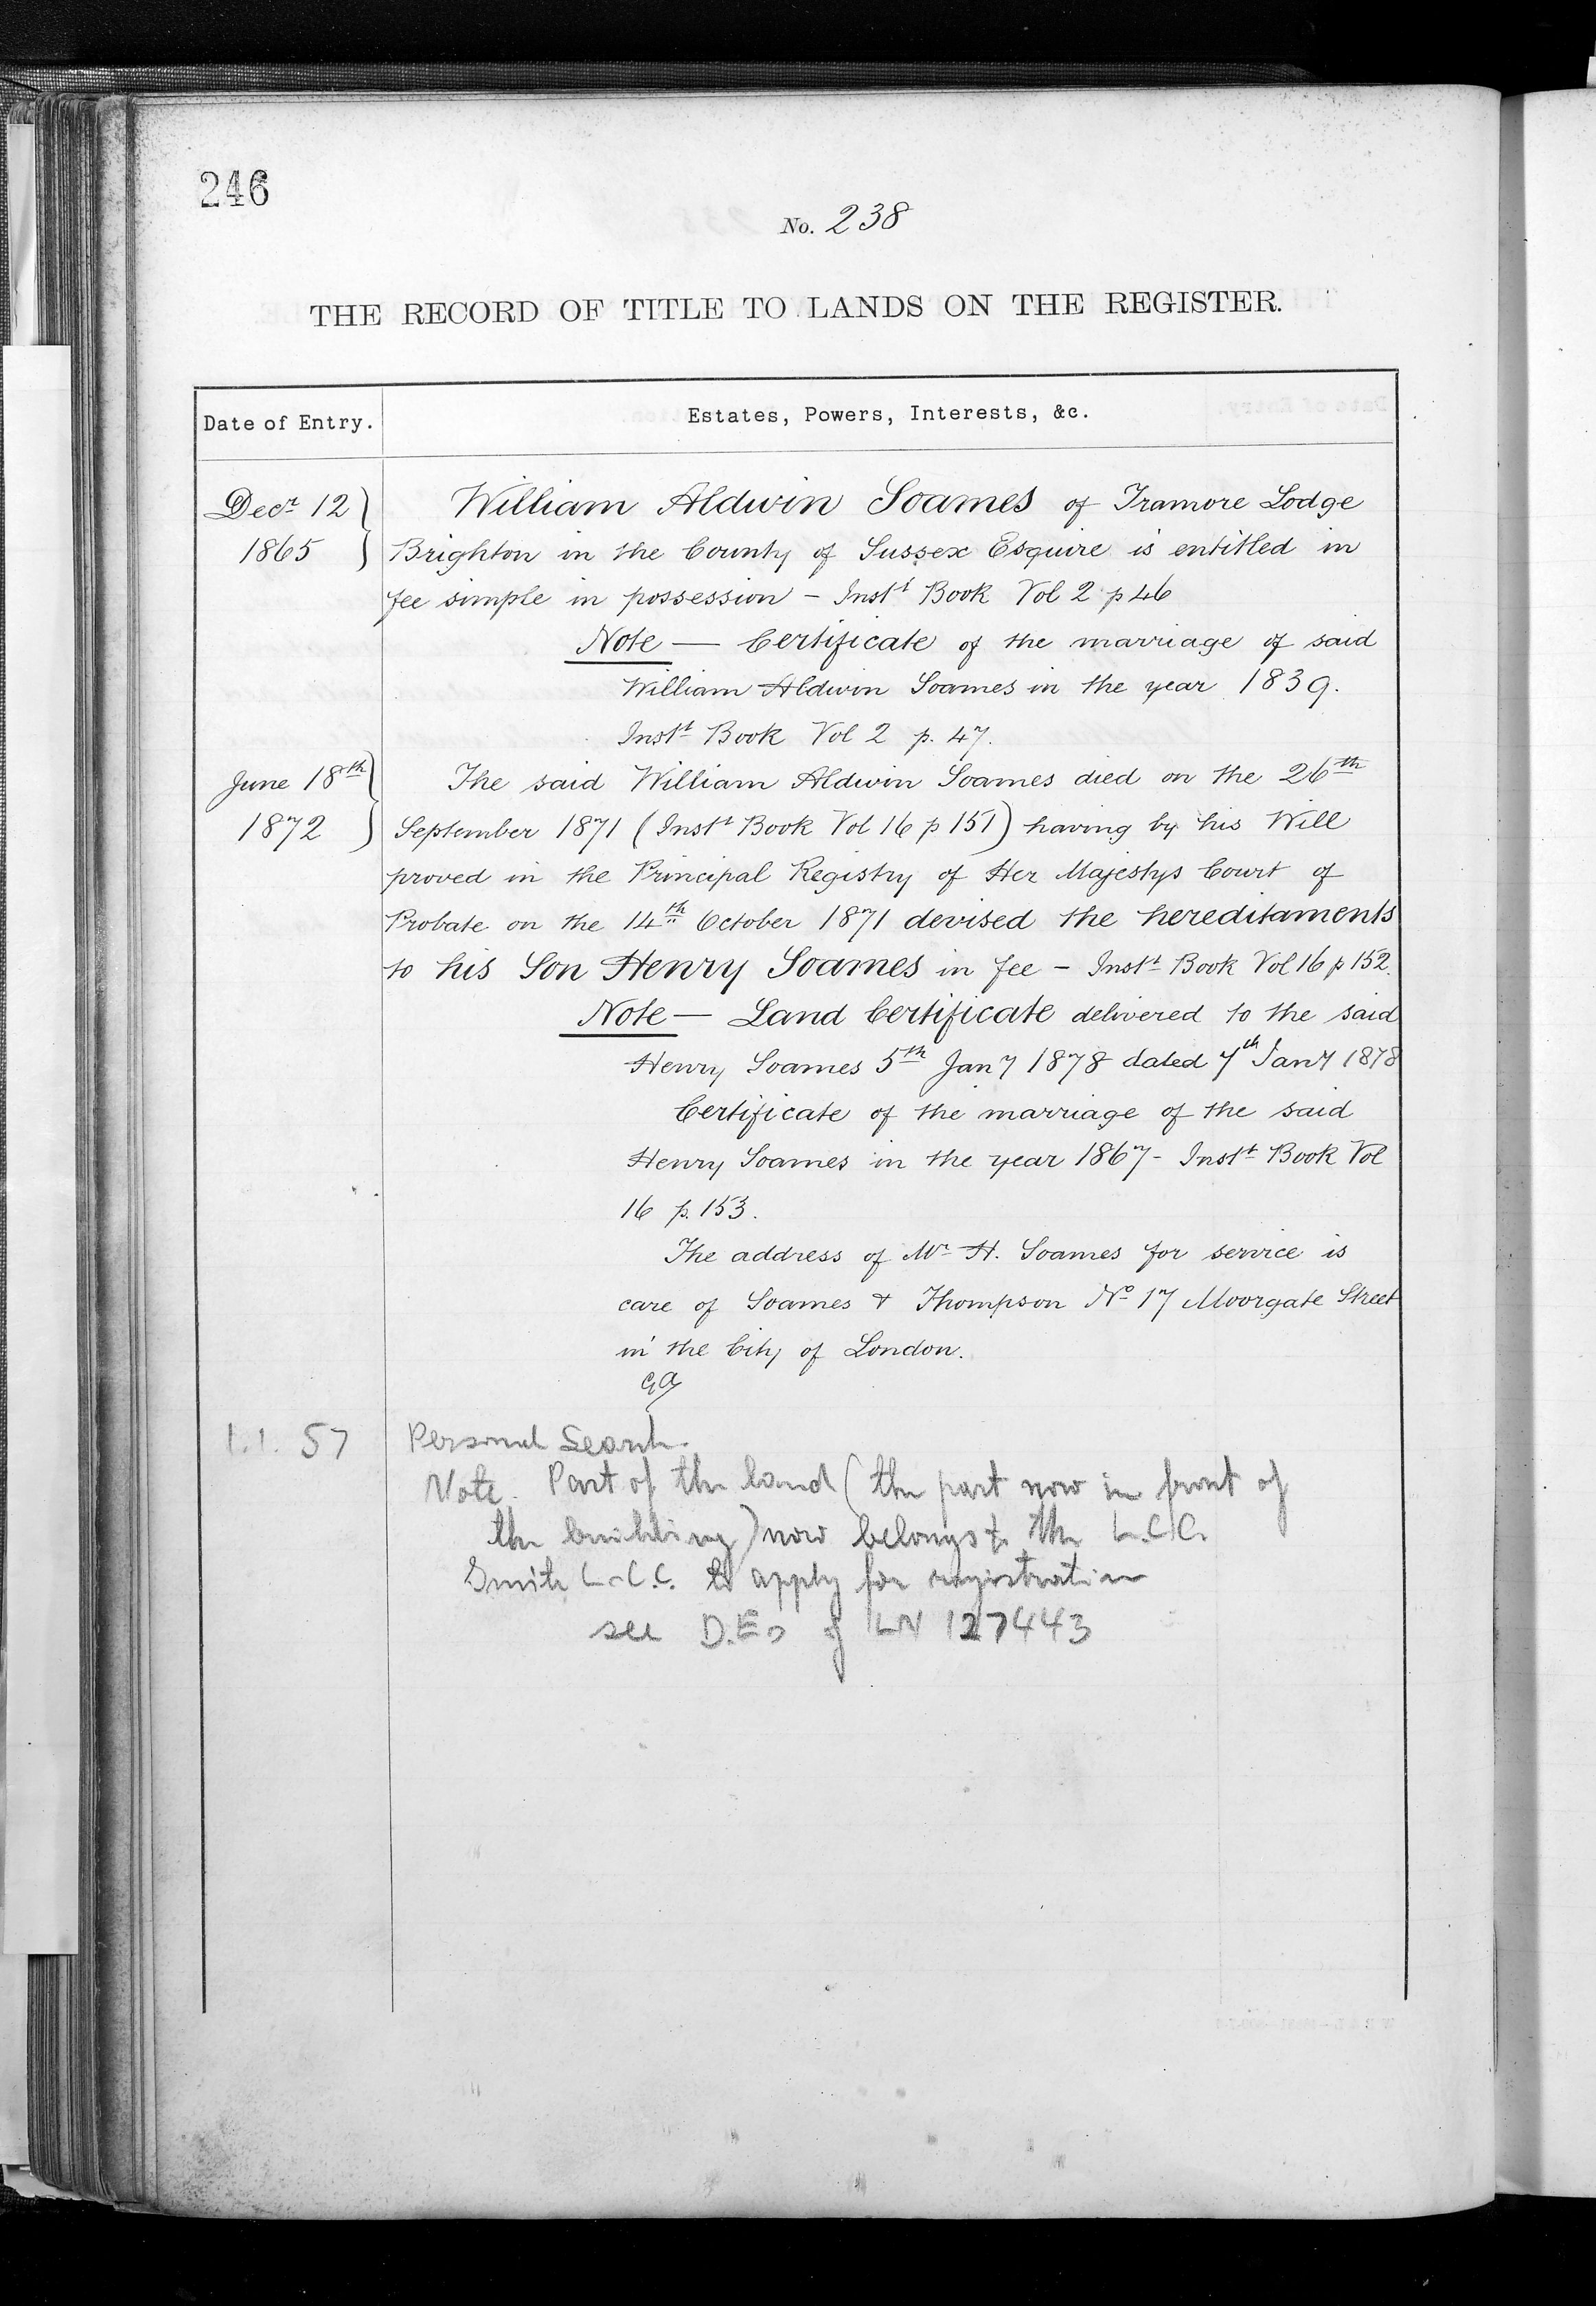 246
No. 238
THE RECORD OF TITLE TO LANDS ON THE REGISTER.
Date of Entry.
Estates, Powers, Interests, &c.
Decr 12
1865
William Aldwin Soames of Tramore Lodge
Brighton in the County of Sussex Esquire is entitled in
fee simple in possession – Instt Book Vol 2 p 46
Note — Certificate of the marriage of said
William Aldwin Soames in the year 1839.
Instt Book Vol 2 p. 47.
June 18th
1872
The said William Aldwin Soames died on the 26th
September 1871 (Instt Book Vol 16 p 151) having by his Will
proved in the Principal Registry of Her Majestys Court of
Probate on the 14th October 1871 devised the hereditaments
to his Son Henry Soames in fee – Instt Book Vol 16 p 152.
Note — Land Certificate delivered to the said
Henry Soames 5th Jany 1878 dated 7th Jany 1878
Certificate of the marriage of the said
Henry Soames in the year 1867 – Instt Book Vol
16 p. 153.
The address of Mr H. Soames for service is
care of Soames & Thompson No 17 Moorgate Street
in the City of London.
1.1.57
Personal Search.
Note. Part of the land (the part now in front of
the building) now belongs to the L.C.C.
L.C.C. to apply for registration
see D.E of LN 127443